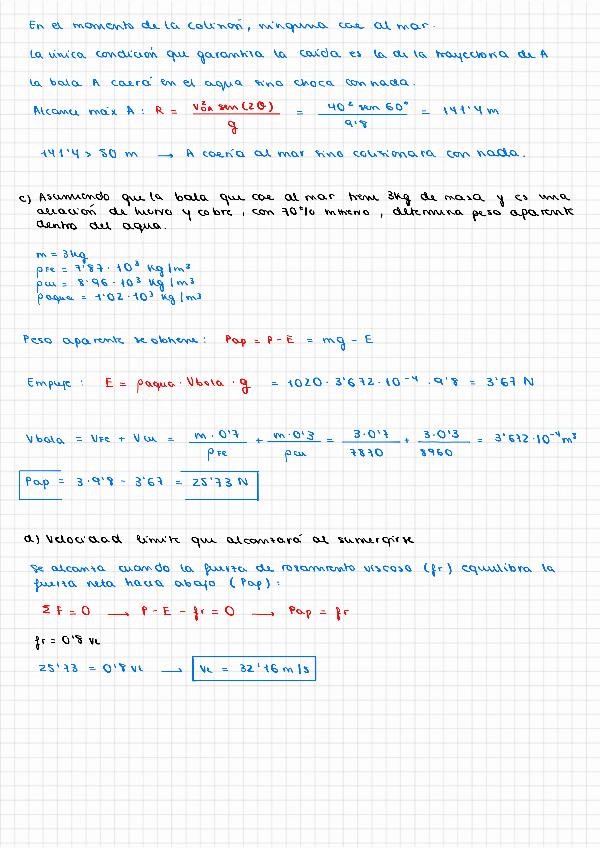 En el momento de la colisión, ninguna cae al mar.
La única condición que garantiza la caída es la de la trayectoria de A
la bala A caerá en el agua sino choca con nada.
Alcance máx A : R = V²₀A sen(2θ) / g = 40² sen 60° / 9'8 = 141'4 m
141'4 > 80 m → A caería al mar sino colisionara con nada.
c) Asumiendo que la bala que cae al mar tiene 3kg de masa y es una
aleación de hierro y cobre, con 70% hierro, determina peso aparente
dentro del agua.
m = 3kg
ρFe = 7'87 · 10³ kg/m³
ρcu = 8'96 · 10³ kg/m³
ρagua = 1'02 · 10³ kg/m³
Peso aparente se obtiene : Pap = P - E = mg - E
Empuje : E = ρagua · Vbola · g = 1020 · 3'672 · 10⁻⁴ · 9'8 = 3'67 N
Vbala = VFe + Vcu = m · 0'7 / ρFe + m · 0'3 / ρcu = 3 · 0'7 / 7870 + 3 · 0'3 / 8960 = 3'672 · 10⁻⁴ m³
Pap = 3 · 9'8 - 3'67 = 25'73 N
d) Velocidad límite que alcanzará al sumergirse
Se alcanza cuando la fuerza de rozamiento viscoso (fr) equilibra la
fuerza neta hacia abajo (Pap) :
ΣF = 0 → P - E - fr = 0 → Pap = fr
fr = 0'8 VL
25'73 = 0'8 VL → VL = 32'16 m/s